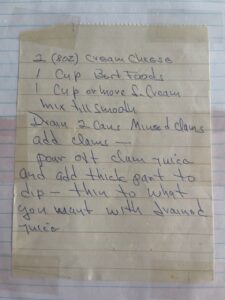 2 (8oz) Cream Cheese
1 Cup Best Foods
1 Cup or more S. Cream
mix till smooth
Drain 2 Cans Minced Clams
add clams —
pour off clam juice
and add thick part to
dip — thin to what
you want with drained
juice